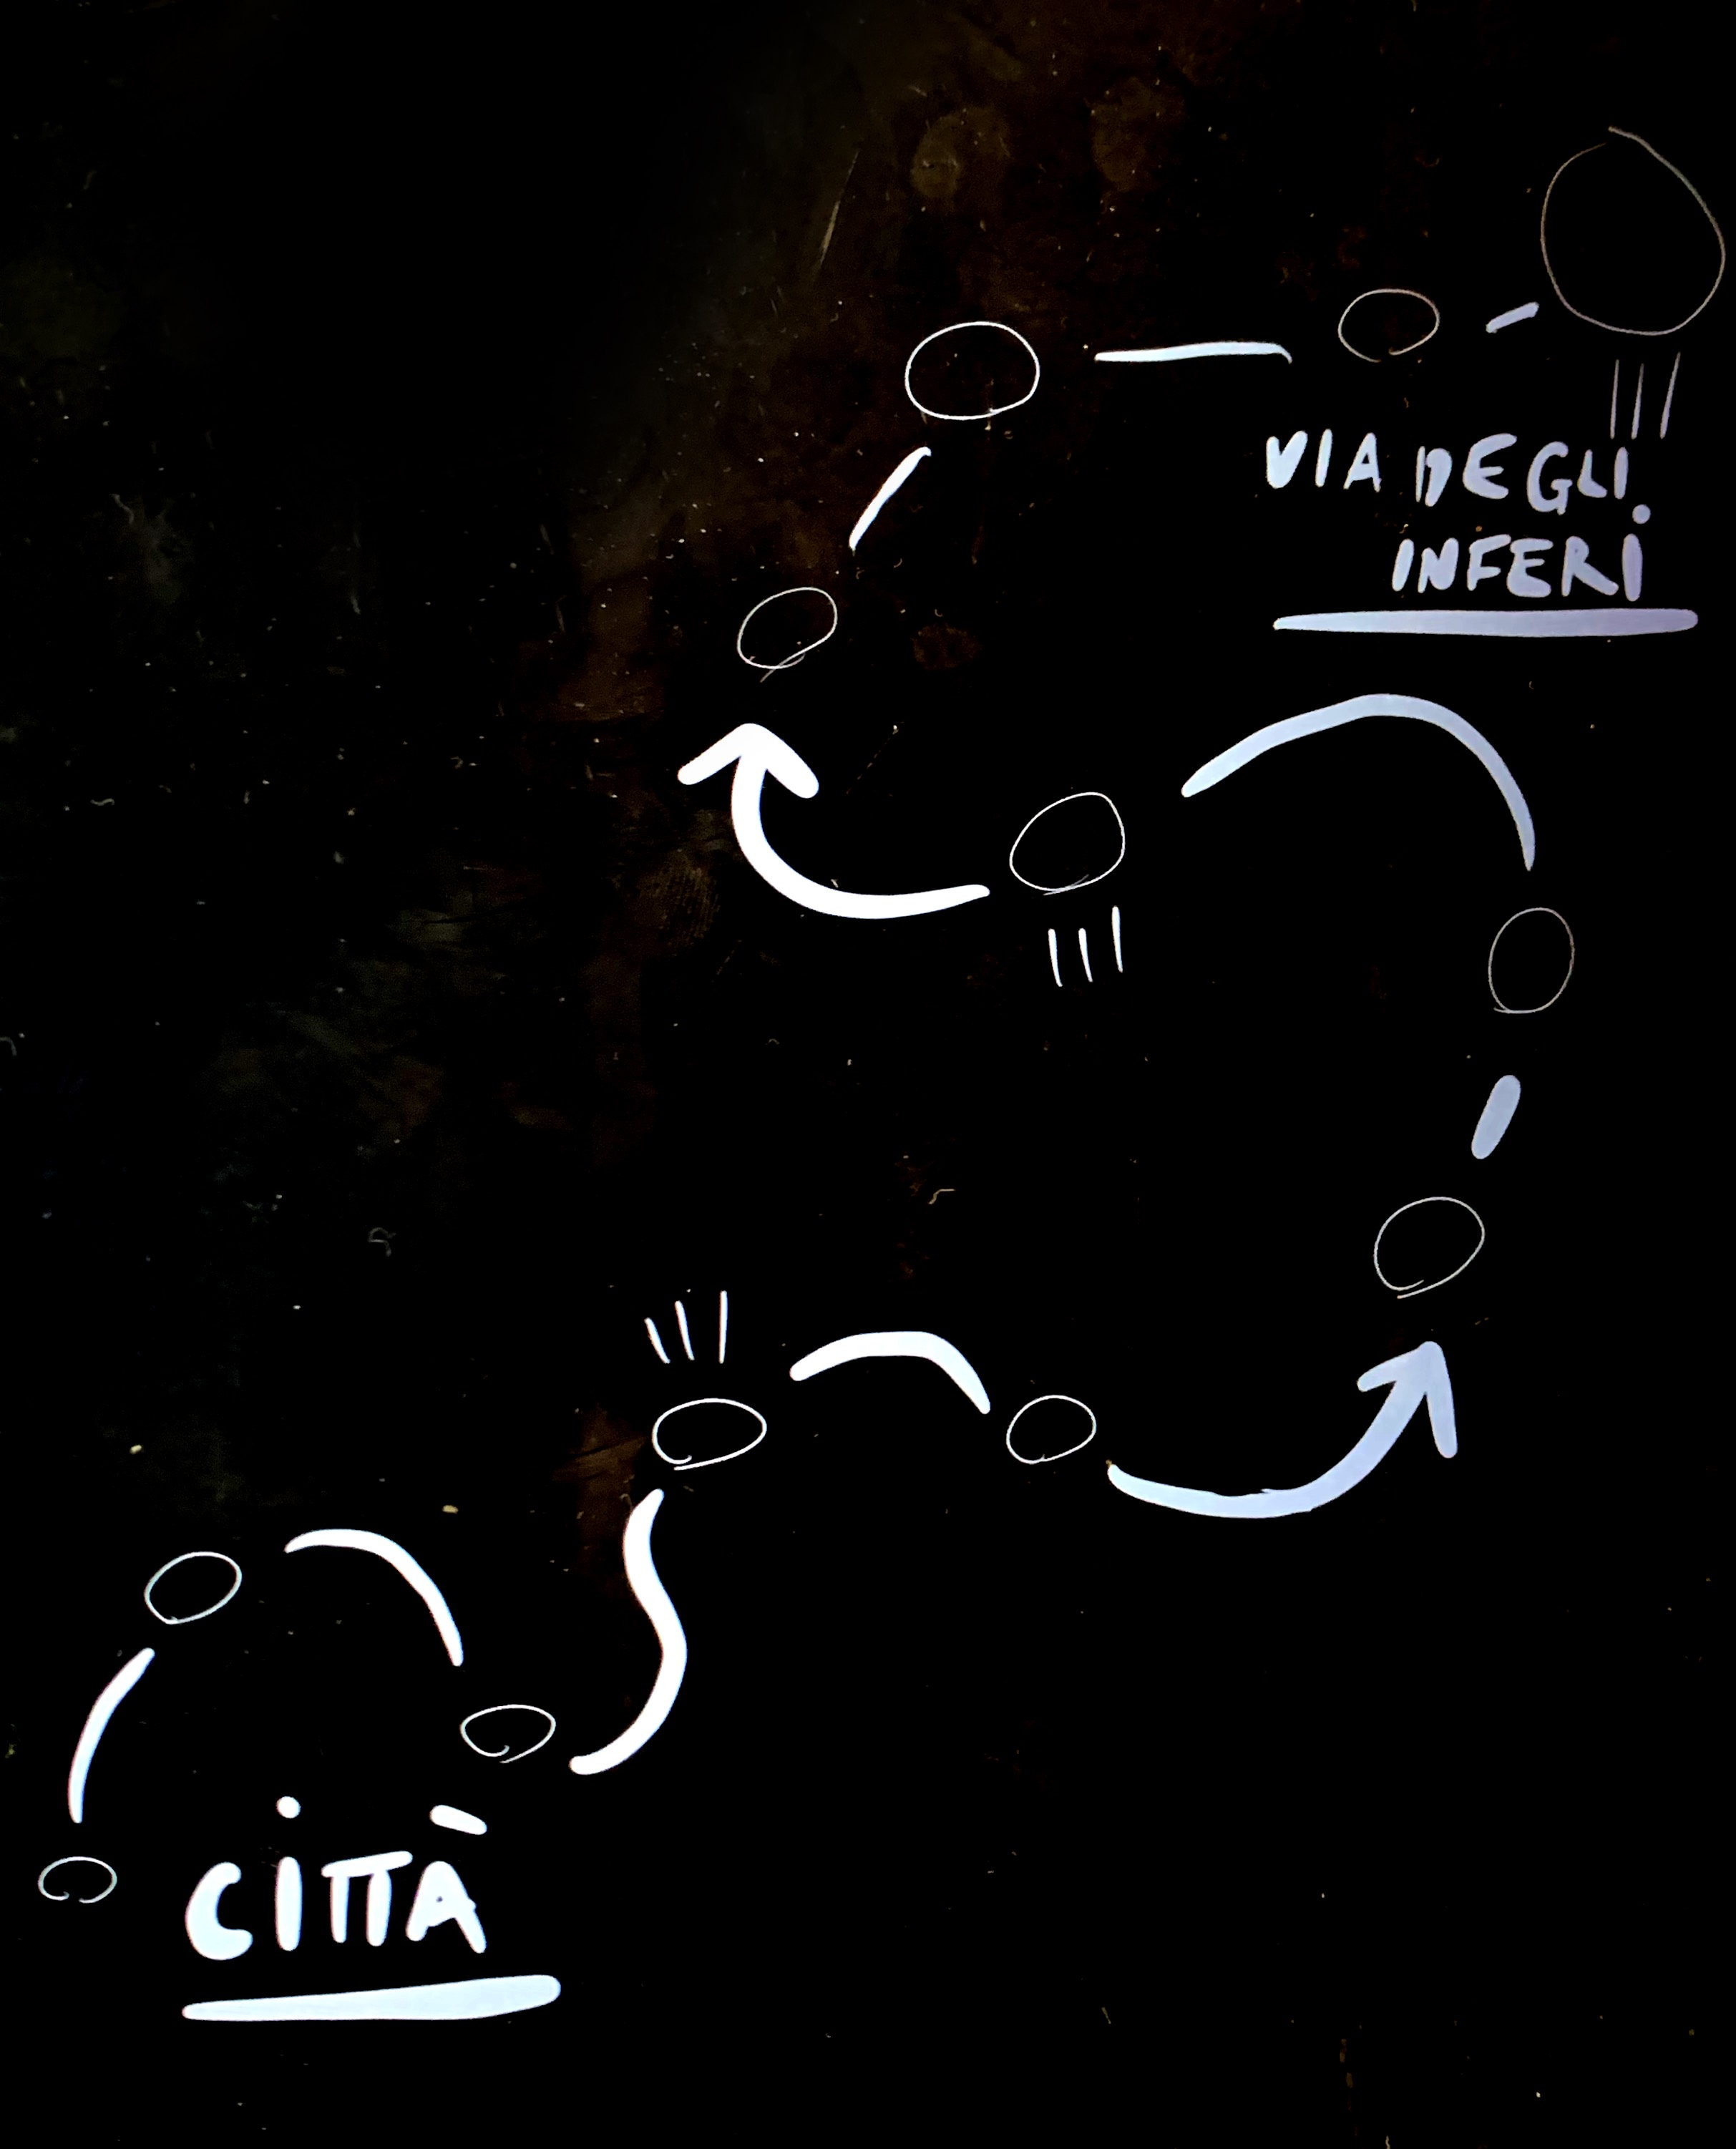 VIA DEGLI
INFERI
CITTÀ